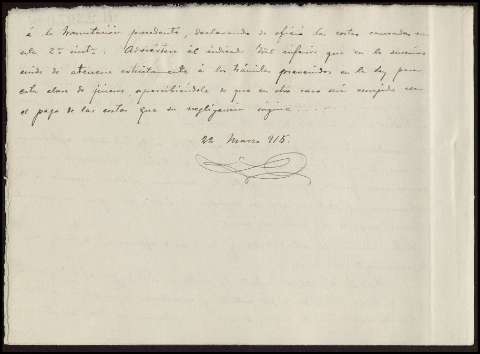 á la tramitación procedente, declarando de oficio las costas causadas en
esta 2ª inst.ª. Adviértese al indicado Juez inferior que en lo sucesivo
cuide de atenerse estrictamente á los trámites prevenidos en la ley para
esta clase de juicios apercibiéndole de que en otro caso será corregido con
el pago de las costas que su negligencia origine.....
22 Marzo 915.